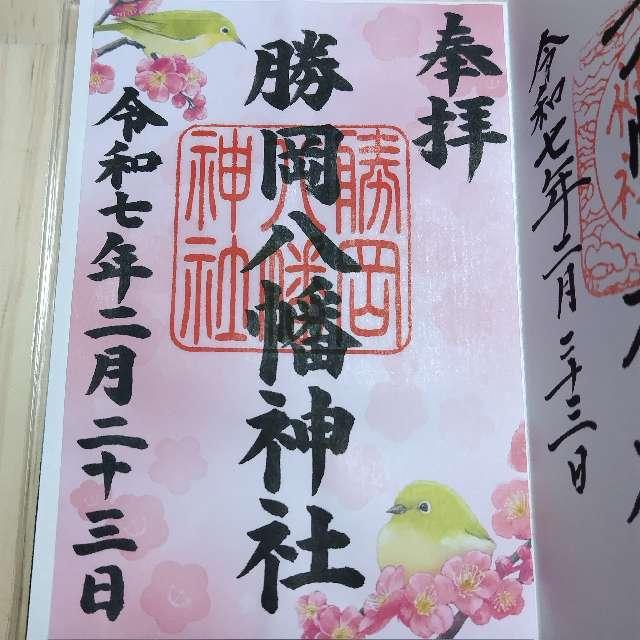 令和七年二月二十三日
奉拝
勝岡八幡神社
勝岡八幡神社
令和七年二月二十三日